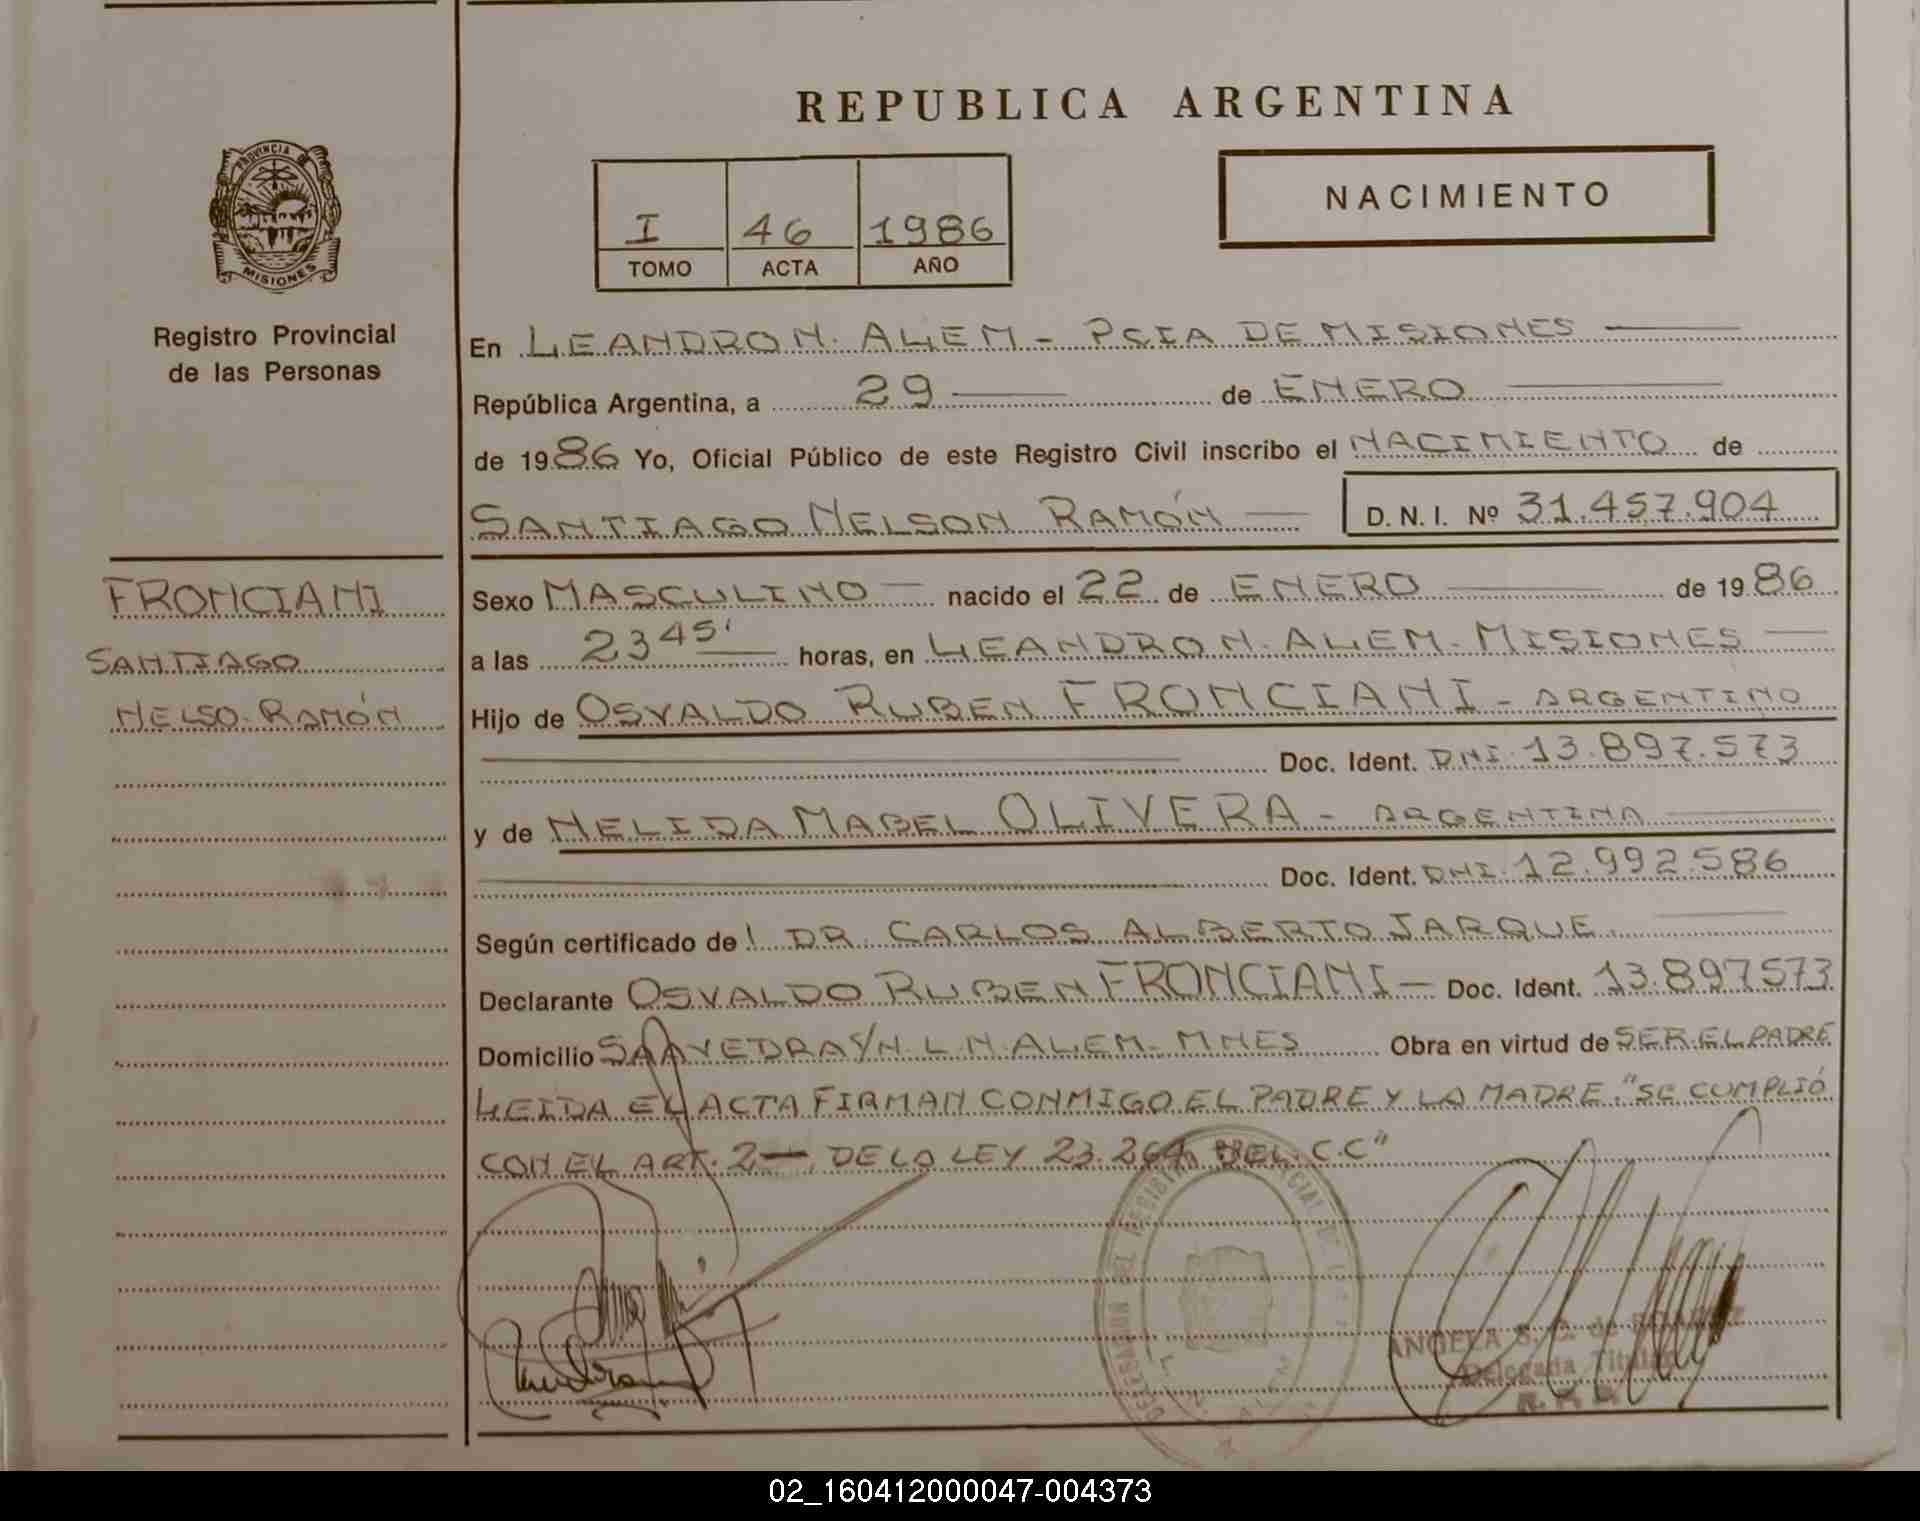 REPUBLICA ARGENTINA
PROVINCIA DE
MISIONES
Registro Provincial
de las Personas
I 46 1986
TOMO ACTA AÑO
NACIMIENTO
En LEANDRO N. ALEM - PCIA DE MISIONES
República Argentina, a 29 de ENERO
de 1986 Yo, Oficial Público de este Registro Civil inscribo el NACIMIENTO de
SANTIAGO NELSON RAMÓN D. N. I. Nº 31.457.904
FRONCIANI
SANTIAGO
NELSO RAMÓN
Sexo MASCULINO nacido el 22 de ENERO de 1986
a las 23 45' horas, en LEANDRO N. ALEM - MISIONES
Hijo de OSVALDO RUBEN FRONCIANI - ARGENTINO
Doc. Ident. DNI 13.897.573
y de NELIDA MABEL OLIVERA - ARGENTINA
Doc. Ident. DNI 12.992.586
Según certificado de DR. CARLOS ALBERTO JARQUE
Declarante OSVALDO RUBEN FRONCIANI - Doc. Ident. 13.897573
Domicilio SAAVEDRA S/N. L. N. ALEM - MNES Obra en virtud de SER EL PADRE
LEIDA EL ACTA FIRMAN CONMIGO EL PADRE Y LA MADRE. "SE CUMPLIÓ
CON EL ART. 2 — DE LA LEY 23.264 DEL C.C"
DELEGACION DEL REGISTRO
ANGELA S.
Delegada Titular
02_160412000047-004373